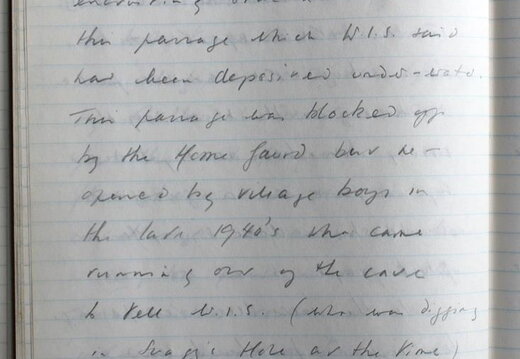 this passage which W.I.S. said
had been deposited under-water.
This passage was blocked off
by the Home Guard but re-
opened by village boys in
the late 1940's who came
running out of the cave
to tell W.I.S. (who was digging
in Hole at the time)